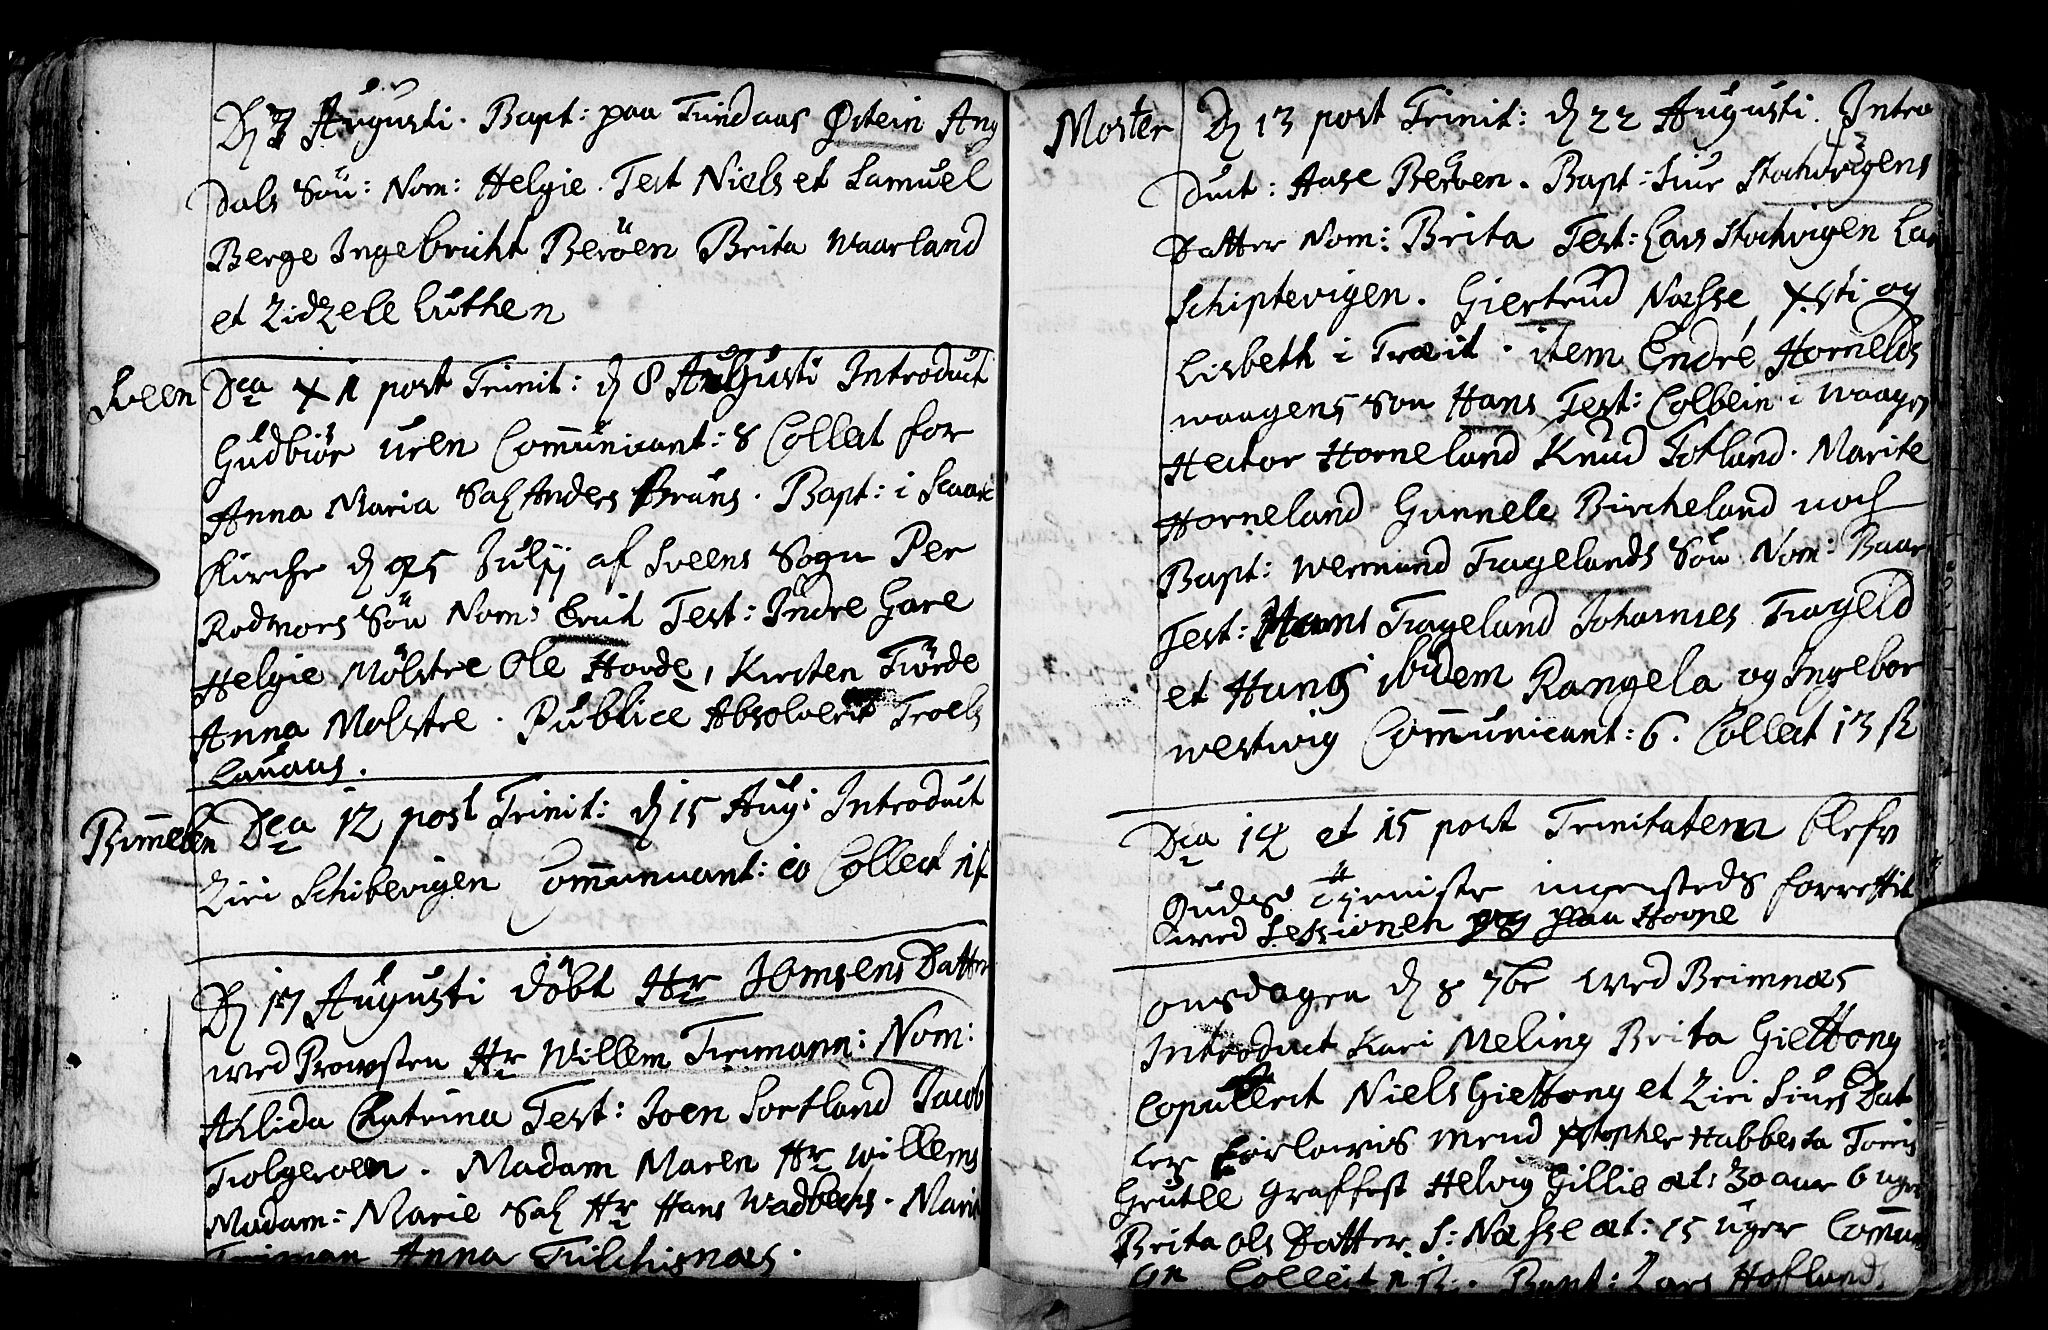 D 7 Augusti. Bapt: paa Findaas Østein Ang
dals Søn: Nom: Helgie. Test Niels et Samuel
Berge Ingebricht Beröen Brita Waarland
et Zidzele Luthen
Sveen
Dca XII post Trinit: d 8 Augusti Introduct
Gudbiör uren Communicant: 8 Collect for
Anna Maria Sal Anders Bruns. Bapt: i
Kirche d 25 Julij af Sveens Sogn Per
Rodmors Sön Nom: Erich Test: Indre Gare
Helgie Mölstre Ole Hovde, Kirsten Tiörde
Anna Molstre. Publice Absolverit Troels
Lauaas.
Bømmelen
Dca 12 post Trinit: d 15 Aug: Introduct
Ziri Schibevigen Communicant: 10 Collect
D 17 Augusti döbt Hr Jomsens Datter
wed Prowsten Hr Willem Frimann: Nom:
Ahlida Catrina Test: Joen Sortland Jacob
Folgeroen. Madam Maren Hr Willems
Madam: Marie Sal Hr Hans Wadbechs. Marie
Friman Anna Filchisnæs.
Moster
D 13 post Trinit: d 22 Augusti. Intro
duct: Aase Beröen. Bapt: Siur Stochvigens
Datter Nom: Brita Test: Lars Stochvigen Lar
Schiptevigen. Giertrud Næsse, Xsti og
Lisbeth i Træit. item Endre Hornelds
waagens Søn Hans Test: Colbein i Waagen
Hector Horneland Knud Totland. Marite
Horneland Gunnele Bircheland noch
Bapt: Wermund Fragelands Søn Nom: Baar
Test: Hans Frageland Johannes Frageld
et Hans ibidem Rangela og Ingebor
westwig Communicant: 6. Collect 13 ß
Dca 14 et 15 post Trinitatem blefv
Guds Tjeniste ingensteds forrettit
wed Sessionen paa Hovne
onsdagen d 8 7br wed Brimnæs
Introduct Kari Meling Brita Giettong
Copulerit Niels Giettong et Ziri Siurs Dat
ter Forlowis mend Xstopher Habbesta Torris
Grutle Graffest Helvig Gillie æt: 30 aar 6 uger
Brita Ols Datter S: Næsse æt: 15 uger Commun
Collect ß. Bapt: Lars Hofland.